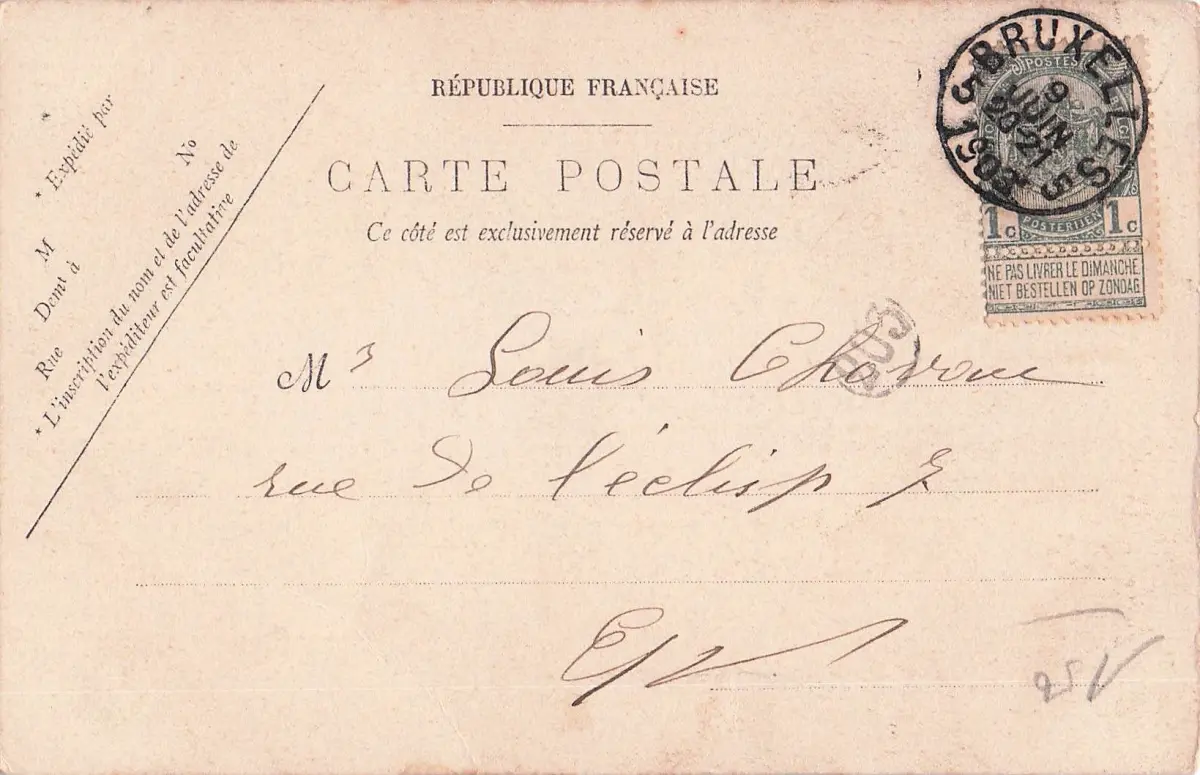 RÉPUBLIQUE FRANÇAISE
CARTE POSTALE
Ce côté est exclusivement réservé à l'adresse
* Expédié par
M
No
Rue
Demt à
* L'inscription du nom et de l'adresse de
l'expéditeur est facultative
BRUXELLES 5
9
JUIN
20-21
1905
POSTES
1c 1c
NE PAS LIVRER LE DIMANCHE
NIET BESTELLEN OP ZONDAG
Mr Louis
rue de l'éclips 7
E/V
25